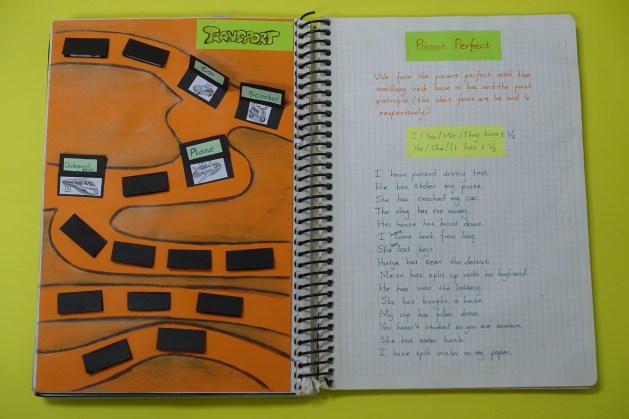 TRANSPORT
Car
Scooter
Plane
Underground
Present Perfect
We form the present perfect with the
auxiliary verb have or has and the past
participle (the short forms are 've and 's
respectively.)
I / You / We / They have + V3
He / She / It has + V3
I have passed driving test.
He has stolen my purse.
She has crashed my car.
The dog has run away.
Her house has burnt down.
I have come back from
She has lost keys
has seen the dentist.
Merve has split up with her boyfriend.
He has won the lottery.
She has bought a house.
My cup has fallen down.
You haven't studied so you are
She has eaten lunch.
I have spilt water on my paper.